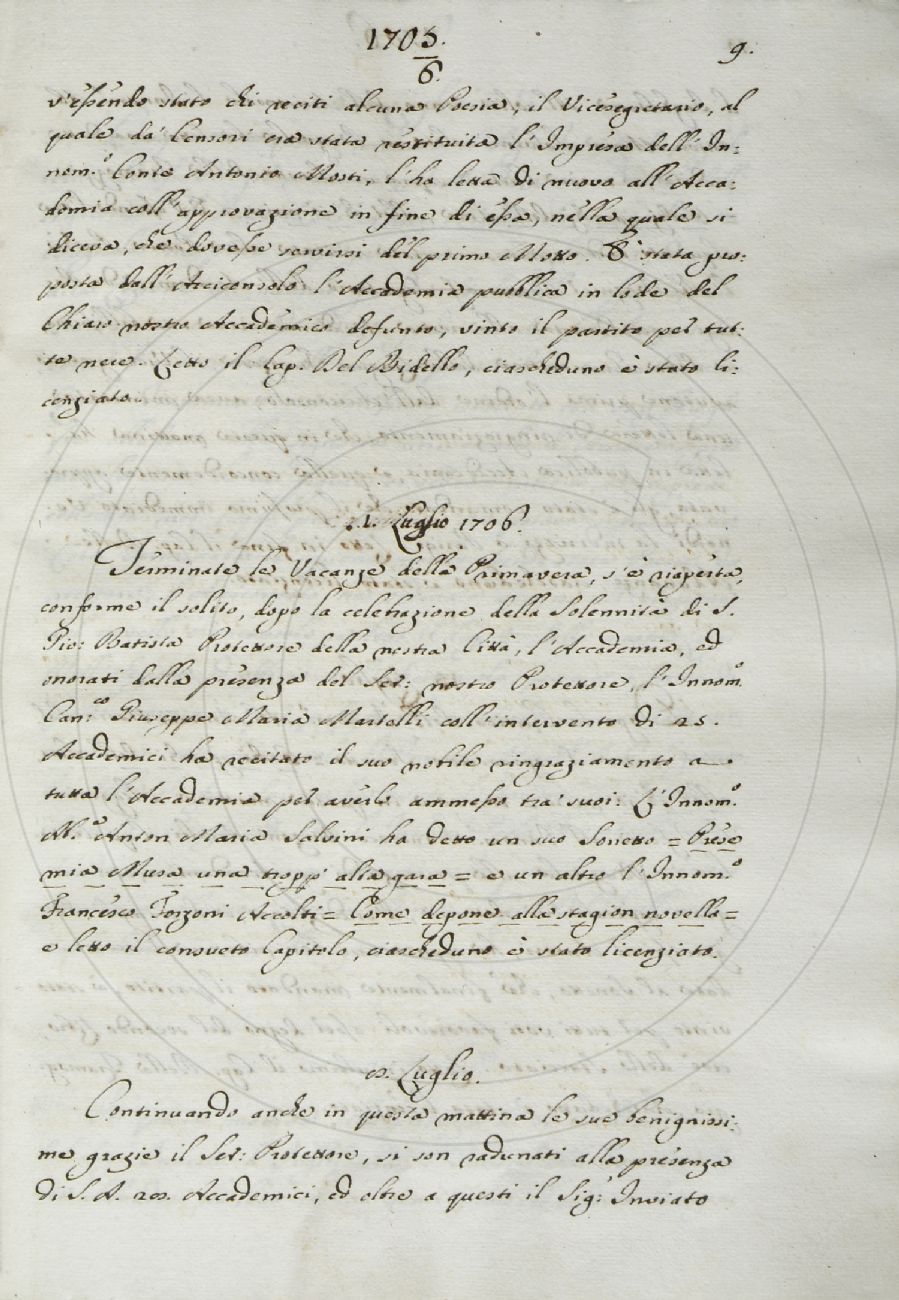 1705.
6.
9.
v'essendo stato chi reciti alcuna Poesia, il Vicesegretario, al
quale da' Censori era stata restituita l'Impresa dell'In:
nom.º Conte Antonio Mosti, l'ha letta di nuovo all'Acca:
demia coll'approvazione in fine di essa, nella quale si
diceva, che dovesse servirsi del primo Motto. È stata pro:
posta dall'Arciconsolo l'Accademia pubblica in lode del
Chiaro nostro Accademico defunto, vinto il partito per tut:
te nere. Letto il Cap. Del Bidello, ciascheduno è stato li:
cenziato.
1. Luglio 1706.
Terminate le Vacanze della Primavera, s'è riaperta,
conforme il solito, dopo la celebrazione della Solennità di S.
Gio: Batista Protettore della nostra Città, l'Accademia, ed
onorati dalla presenza del Ser: nostro Protettore, l'Innom.º
Can.co Giuseppe Maria Martelli coll'intervento di 25.
Accademici ha recitato il suo nobile ringraziamento a
tutta l'Accademia per averlo ammesso tra' suoi: L'Innom.º
Ab.e Anton Maria Salvini ha detto un suo Sonetto = Prese
mia Musa una tropp'alta gara = e un altro l'Innom.º
Francesco Forzoni Accolti = Come depone alla stagion novella =
e letto il consueto Capitolo, ciascheduno è stato licenziato.
Luglio.
Continuando anche in questa mattina le sue benignissi:
me grazie il Ser: Protettore, si son radunati alla presenza
di S. A. Accademici, ed oltre a questi il Sig: Inviato